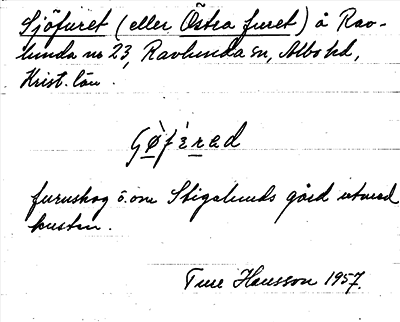 Sjöfuret (eller Östra furet) å Rav-
lunda nr 23, Ravlunda sn, Albo hd,
Krist. län.
furuskog ö. om Stigalunds gård utmed
kusten.
Ture Hansson 1957.